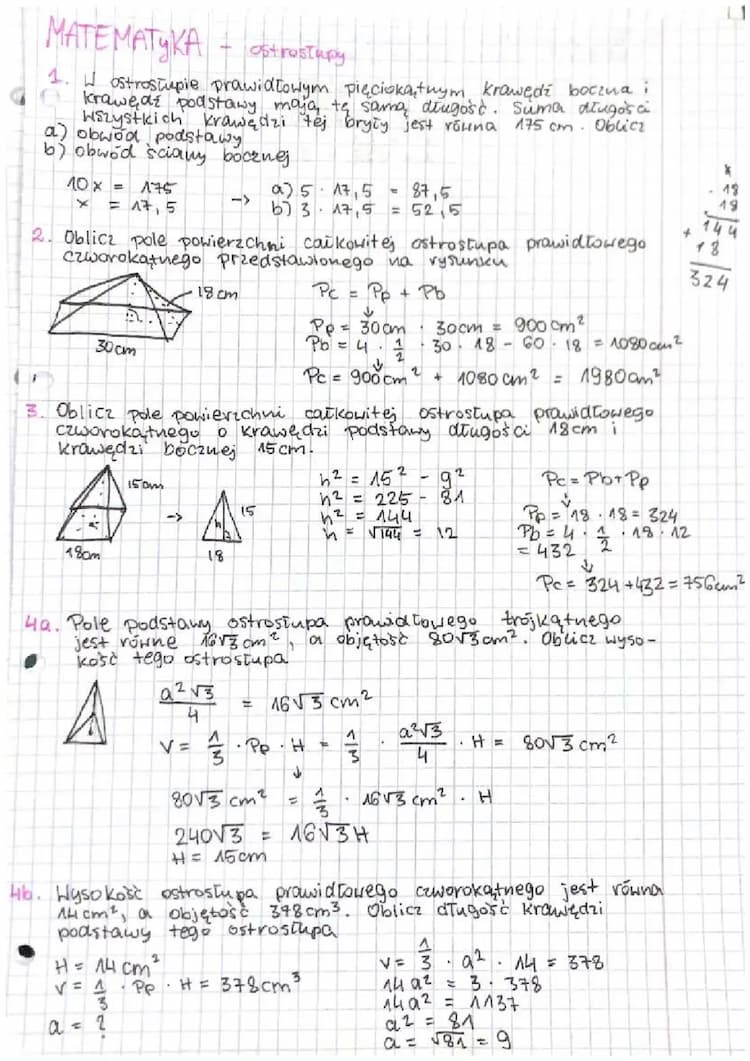 MATEMATYKA - ostrosłupy
1. W ostrosłupie prawidłowym pięciokątnym krawędź boczna i
krawędź podstawy mają tę samą długość. Suma długości
wszystkich krawędzi tej bryły jest równa 175 cm. Oblicz
a) obwód podstawy
b) obwód ściany bocznej
10x = 175
x = 17,5
-> a) 5 · 17,5 = 87,5
b) 3 · 17,5 = 52,5
· 18
18
+ 144
18
324
2. Oblicz pole powierzchni całkowitej ostrosłupa prawidłowego
czworokątnego przedstawionego na rysunku
18cm
30cm
Pc = Pp + Pb
↓
Pp = 30cm · 30cm = 900cm²
Pb = 4 · 1/2 · 30 · 18 - 60 · 18 = 1080cm²
↓
Pc = 900cm² + 1080cm² = 1980cm²
3. Oblicz pole powierzchni całkowitej ostrosłupa prawidłowego
czworokątnego o krawędzi podstawy długości 18cm i
krawędzi bocznej 15cm.
15cm
18cm
->
15
h
18
h² = 15² - 9²
h² = 225 - 81
h² = 144
h = √144 = 12
Pc = Pb + Pp
↓
Pp = 18 · 18 = 324
Pb = 4 · 1/2 · 18 · 12
= 432
↓
Pc = 324 + 432 = 756cm²
4a. Pole podstawy ostrosłupa prawidłowego trójkątnego
jest równe 16√3cm², a objętość 80√3cm². Oblicz wyso-
kość tego ostrosłupa
a²√3/4 = 16√3 cm²
V = 1/3 · Pp · H = 1/3 · a²√3/4 · H = 80√3 cm²
↓
80√3 cm² = 1/3 · 16√3 cm² · H
240√3 = 16√3H
H = 15cm
4b. Wysokość ostrosłupa prawidłowego czworokątnego jest równa
14cm², a objętość 378cm³. Oblicz długość krawędzi
podstawy tego ostrosłupa
H = 14cm²
V = 1/3 · Pp · H = 378cm³
a = ?
V = 1/3 · a² · 14 = 378
14a² = 3 · 378
14a² = 1137
a² = 81
a = √81 = 9